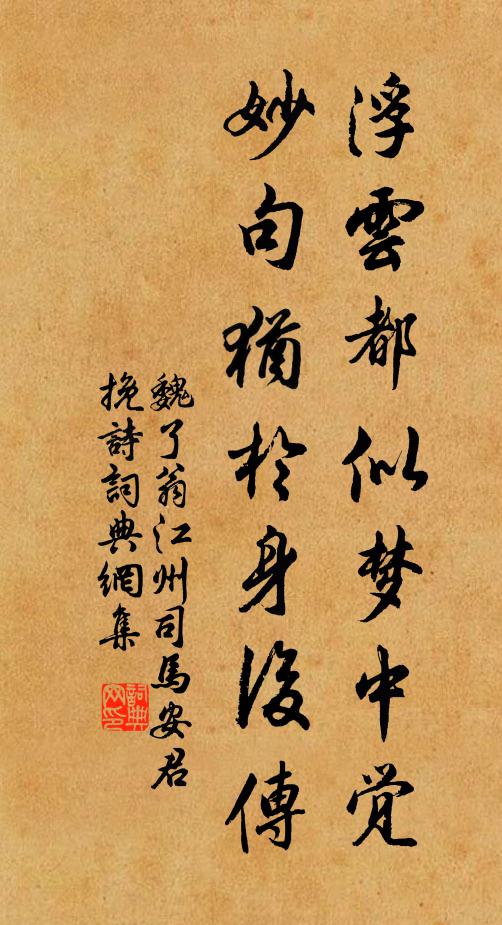 浮雲都似梦中觉
妙句猶於身後傳
魏了翁江州司馬安君
挽詩詞典網集
詞典
网印